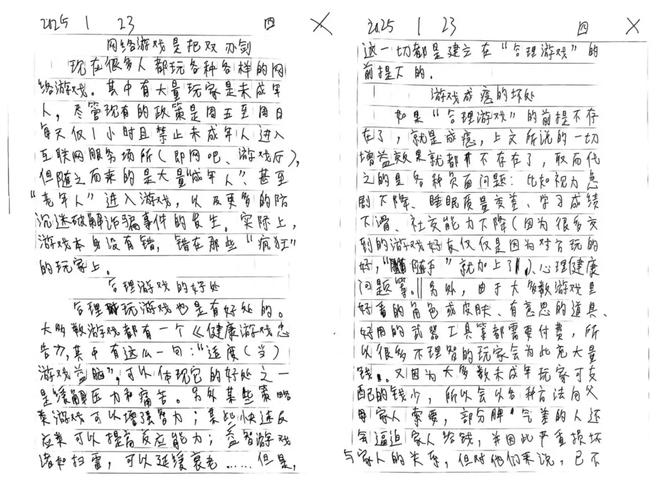 2025 1 23 四
网络游戏是把双刃剑
现在很多人都玩各种各样的网
络游戏。其中有大量玩家是未成年
人，尽管现有的政策是周五至周日
每天仅1小时且禁止未成年人进入
互联网服务场所(即网吧、游戏厅),
但随之而来的是大量"成年人"、甚至
"老年人"进入游戏，以及更多的防
沉迷破解诈骗事件的发生。实际上，
游戏本身没有错，错在那些"疯狂"
的玩家上。
合理游戏的好处
合理玩游戏也是有好处的。
大多数游戏都有一个《健康游戏忠
告》，其中有这么一句："适度(当)
游戏益脑"，可以体现它的好处之一
是缓解压力和痛苦。另外某些策略
类游戏可以增强智力；某些快速反
应类可以提高反应能力；益智游戏
诸如扫雷，可以延缓衰老……但是，
2025 1 23 四
这一切都是建立在"合理游戏"的
前提下的。
游戏成瘾的坏处
如果"合理游戏"的前提不存
在了，就是成瘾，上文所说的一切
增益效果就都不存在了，取而代
之的是各种负面问题：比如视力急
剧下降、睡眠质量变差、学习成绩
下滑、社交能力下降(因为很多交
到的游戏好友仅仅是因为对方玩的
好，"随手"就加上了)、心理健康
问题等。另外，由于大多数游戏是
好看的角色或皮肤、有意思的道具、
好用的武器工具等都需要付费，所
以很多不理智的玩家会为此充大量
钱。又因为大多数未成年玩家可支
配的钱少，所以会以各种方法向父
母家人索要，部分脾气差的人还
会逼迫家人给钱，并因此严重损坏
与家人的关系，但对他们来说，已不